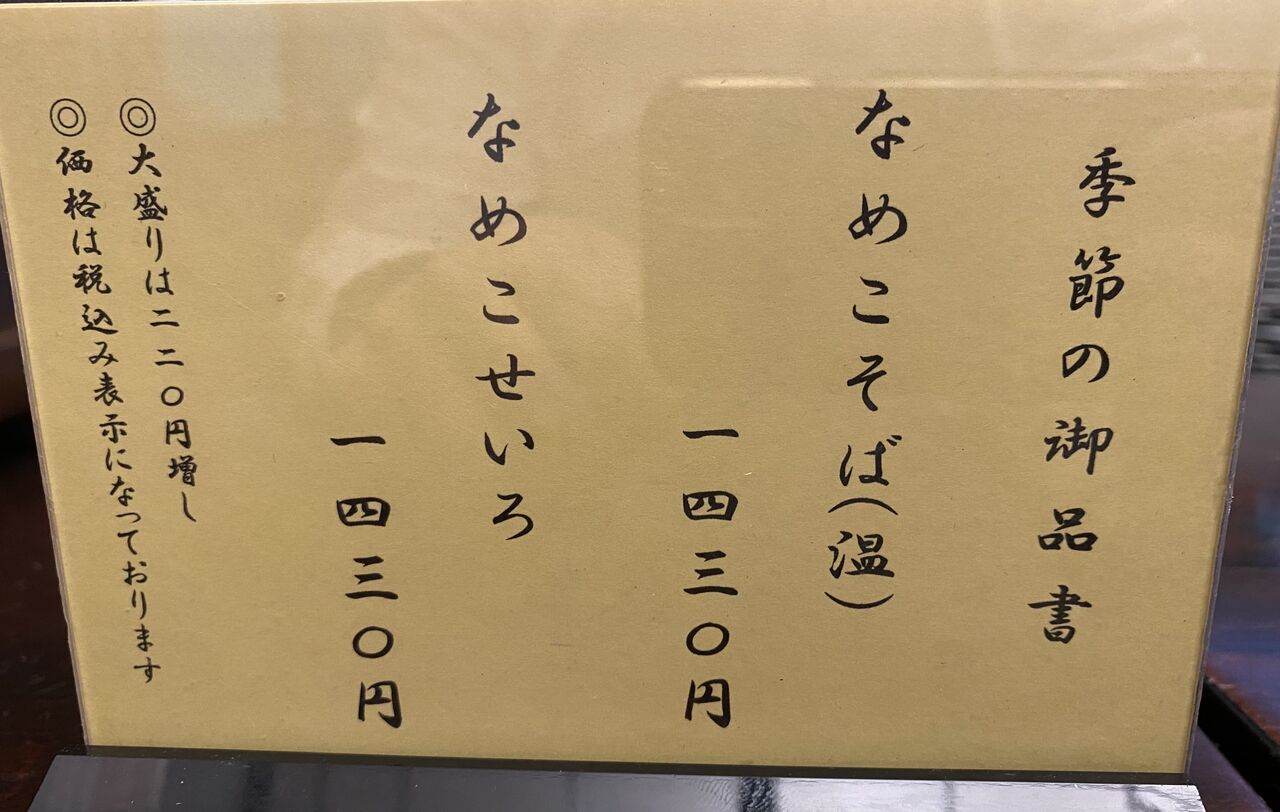 季節の御品書
なめこそば（温）
一四三〇円
なめこせいろ
一四三〇円
◎大盛りは二二〇円増し
◎価格は税込み表示になっております